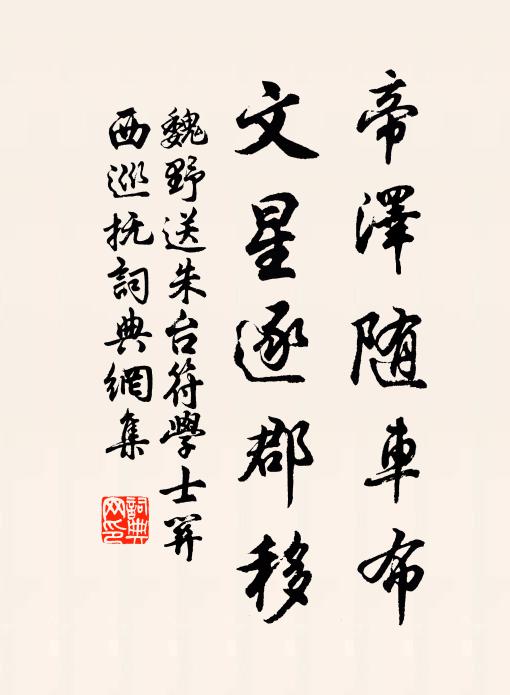 帝澤随車布
文星逐郡移
魏野送朱台符學士并
西巡抚詞典網集
詞典
网印